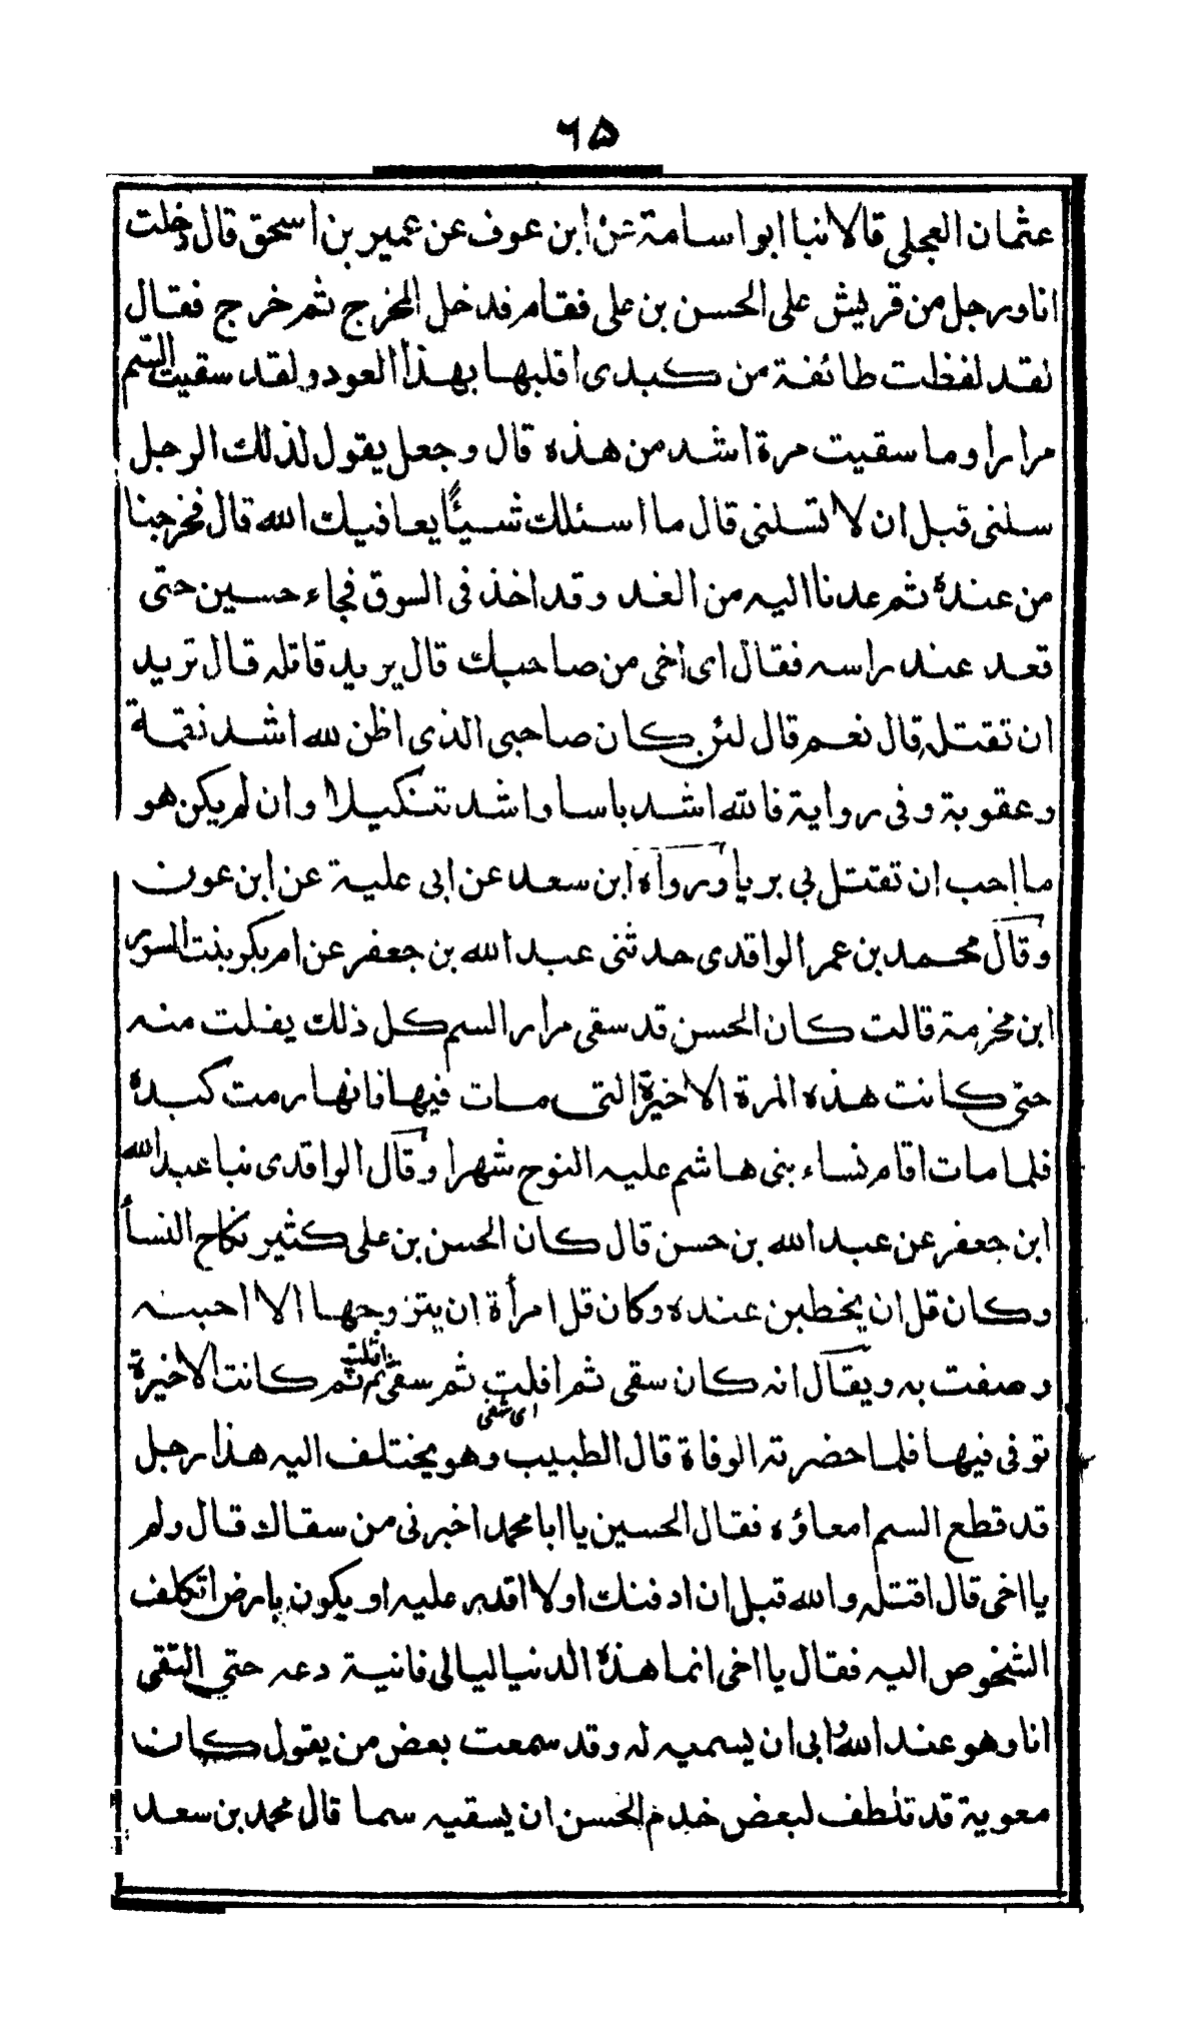 ۶۵
عثمان العجلي قالا نبا ابو اسامة عن ابن عوف عن عمير بن اسحق قال دخلت
انا ورجل من قريش على الحسن بن على فقام فدخل المخرج ثم خرج فقال
لقد لفظت طائفة من كبدى اقلبها بهذا العود ولقد سقيت السم
مرارا وما سقيت مرة اشد من هذه قال وجعل يقول لذلك الرجل
سلنى قبل ان لا تسلنى قال ما اسئلك شيئًا يعافيك الله قال فخرجنا
من عنده ثم عدنا اليه من الغد وقد اخذ فى السوق فجاء حسين حتى
قعد عند راسه فقال اى اخى من صاحبك قال يريد قاتله قال تريد
ان تقتله قال نعم قال لئن كان صاحبى الذى اظن لله اشد نقمة
وعقوبة وفى رواية فالله اشد باسا واشد تنكيلا وان لم يكن هو
ما احب ان تقتل بى بريا ورواه ابن سعد عن ابى علية عن ابن عون
وقال محمد بن عمر الواقدى حدثنى عبد الله بن جعفر عن ام بكر بنت المسور
ابن مخرمة قالت كان الحسن قد سقى مرار السم كل ذلك يفلت منه
حتى كانت هذه المرة الاخيرة التى مات فيها فانها رمت كبده
فلما مات اقام نساء بنى هاشم عليه النوح شهرا وقال الواقدى نبا عبد الله
ابن جعفر عن عبد الله بن حسن قال كان الحسن بن على كثير نكاح النسأ
وكان قل ان يخطبن عنده وكان قل امرأة ان يتزوجها الا احبته
وصفت به ويقال انه كان سقى ثم افلت ثم سقى ثم افلت ثم كانت الاخيرة
اى شفى
توفى فيها فلما حضرته الوفاة قال الطبيب وهو يختلف اليه هذا رجل
قد قطع السم امعاؤه فقال الحسين يا ابا محمد اخبرنى من سقاك قال ولم
يا اخى قال اقتله والله قبل ان ادفنك اولا اقدر عليه او يكون بارض اتكلف
الشخوص اليه فقال يا اخى انما هذه الدنيا ليالى فانية دعه حتي التقى
انا وهو عند الله وابى ان يسميه له وقد سمعت بعض من يقول كان
معوية قد تلطف لبعض خدم الحسن ان يسقيه سما قال محمد بن سعد